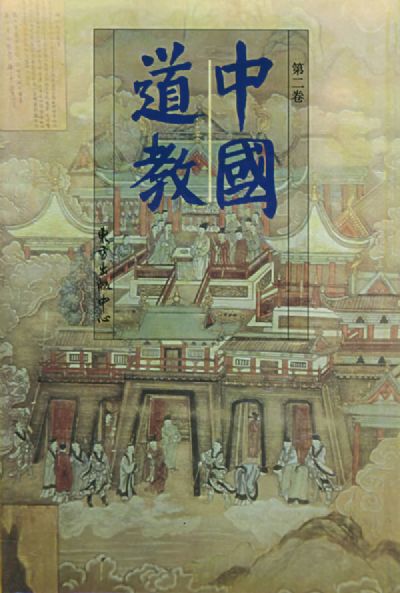 中國
道教
第二卷
東方出版中心